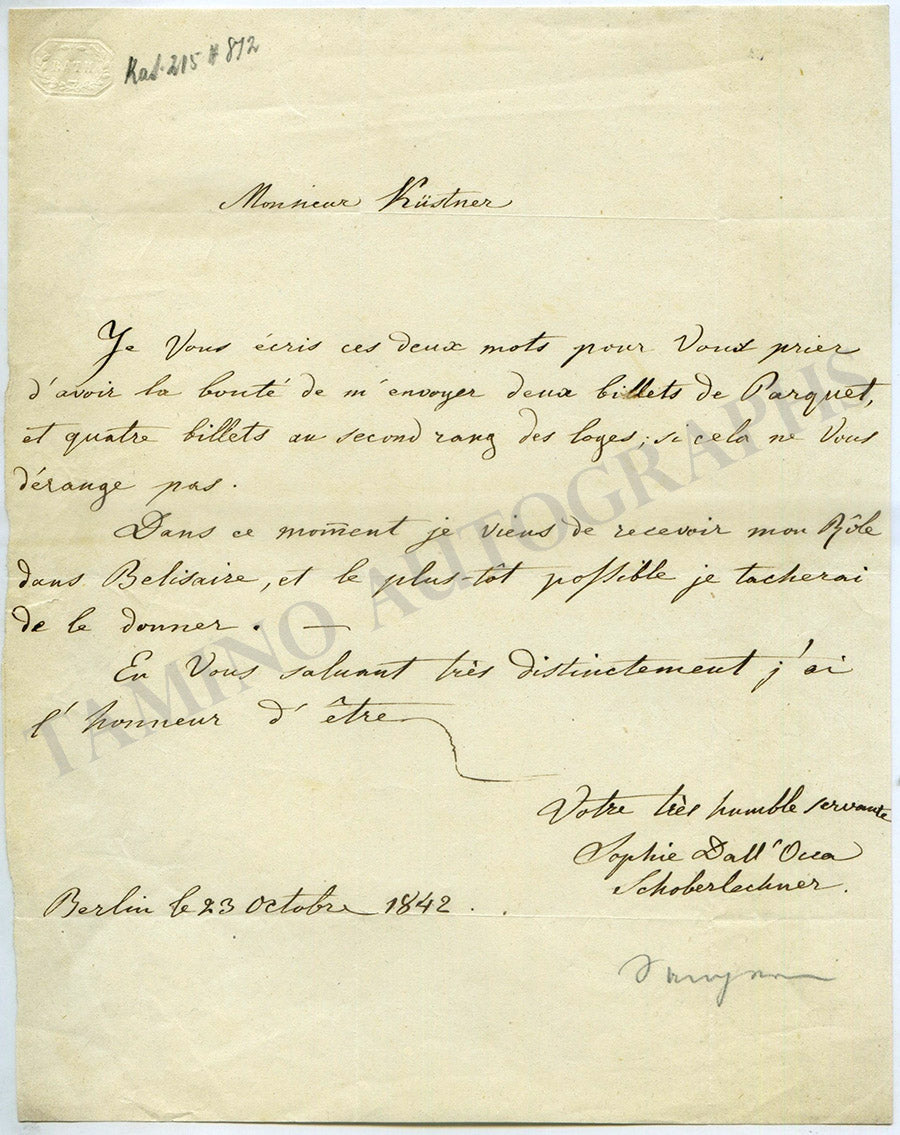 BATH
Kat. 215 # 812
Monsieur Küstner
Je Vous écris ces deux mots pour Vous prier
d'avoir la bonté de m'envoyer deux billets de Parquet,
et quatre billets au second rang des loges; si cela ne Vous
dérange pas.
Dans ce moment je viens de recevoir mon Rôle
dans Belisaire, et le plus-tôt possible je tacherai
de le donner. —
En Vous saluant très distinctement j'ai
l'honneur d'être
Votre très humble servante
Sophie Dall'Occa
Schoberlechner.
Berlin le 23 Octobre 1842 . .
TAMINO AUTOGRAPHS